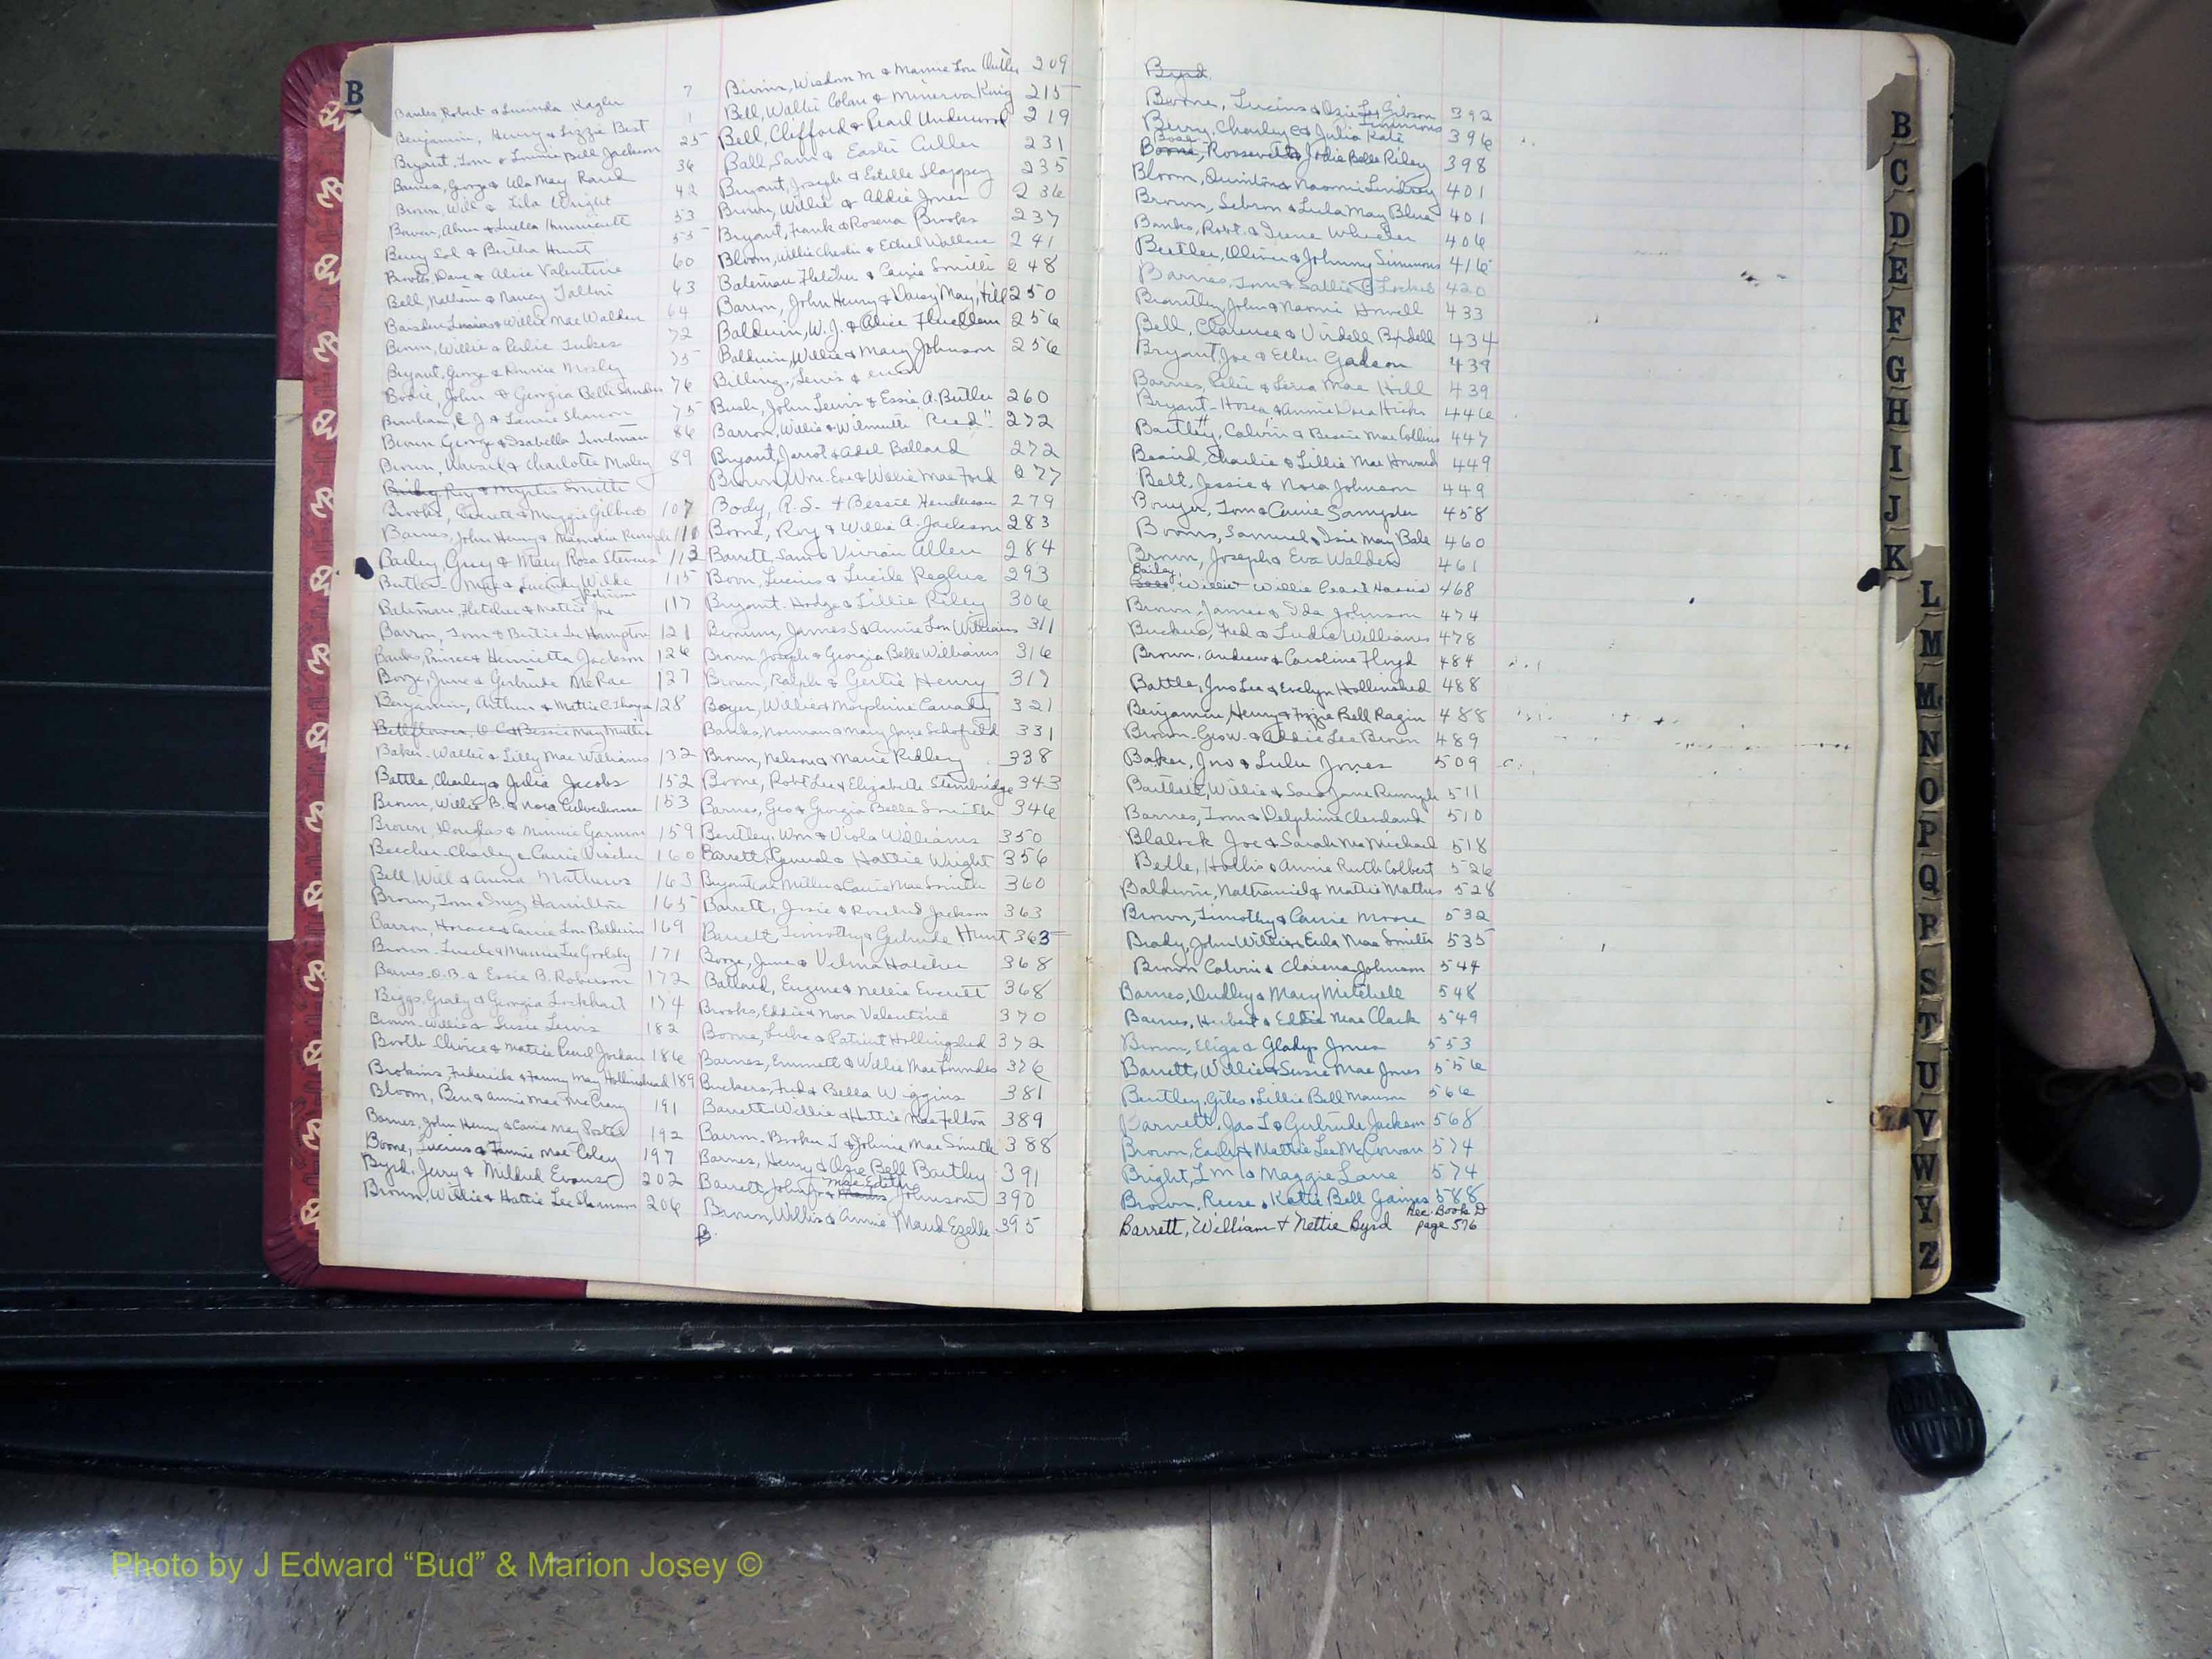 B
Banks, Robert & Lucinda Kagler 7
Benjamin, Henry & Lizzie Best 1
Bryant, Tom & Linnie Bell Jackson 25
Barnes, George & Ula May Rand 36
Brown, Will & Lila Wright 42
Bowen, & Luella 53
Berry Sol & Bertha Hunt 55
Brooks, Dave & Alice Valentine 60
Bell, Nathan & Nancy 63
Willie Mae Walden 64
Willie & Perlie Tukes 72
Bryant, George & Mosley 75
Bodie, John & Georgia Belle Sanders 76
E. J. & Shannon 75
George & Isabella 86
Brown, & Charlotte Mosley 89
Roy & Myrtis Smith
Brooks, Everett & Maggie Gilbert 107
Barnes, John Henry & Magnolia 110
Bailey, Guy & Mary Rosa Stevens 113
Butler 115
Bateman, Fletcher & Mattie 117
Barron, Tom & Bertie Lee Hampton 121
Banks, Prince & Henrietta Jackson 126
Boze, June & Gertrude McRae 127
Benjamin, Arthur & Mattie C. 128
& Bessie May
Baker, Wallie & Lilly Mae Williams 132
Battle, Charley & Julia Jacobs 152
Brown, Willie B. & Nora Culverhouse 153
Brown, Douglas & Minnie Garmon 159
Beecher, Charley & Carrie 160
Bell, Will & Anna Mathews 163
Brown, Tom & Inez Hamilton 165
Barron, Horace & Carrie Lou Baldwin 169
Brown, & Mannie Lee Goolsby 171
Barnes, O.B. & Essie B. Roberson 172
Biggs, Grady & Georgia Lockhart 174
Brown, Willie & Susie Lewis 182
Booth, Choice & Mattie Pearl Jordan 186
Brokins, Frederick & Fanny May Hollinshead 189
Bloom, Ben & Annie Mae McCrary 191
Barnes, John Henry & Carrie May Postell 192
Boone, Lucius & Fannie Mae Coley 197
Byrd, Jerry & Mildred Evans 202
Brown, Willie & Hattie Lee Shannon 206
Bivins, Wisdom M & Mamie Lou 209
Bell, Wallie Colan & Minerva King 215
Bell, Clifford & Pearl Underwood 219
Ball, Sam & Easter Culler 231
Bryant, Joseph & Estelle Slappey 235
Brown, Willie & Addie Jones 236
Bryant, Frank & Rosena Brooks 237
Bloom, Willie Cheslie & Ethel Wallace 241
Bateman, Fletcher & Carrie Smith 248
Barron, John Henry & Daisy May Hill 250
Baldwin, W.J. & Alice Fluellen 256
Baldwin, Willie & Mary Johnson 256
Billings, Lewis &
Bush, John Lewis & Essie A. Butler 260
Barron, Willie & Wilmuth "Reed" 272
Bryant, Jarrot & Adel Ballard 272
Brown, Wm. Eve & Willie Mae Ford 277
Body, R. S. & Bessie Henderson 279
Boone, Roy & Willie A. Jackson 283
Barrett, Sam & Vivian Allen 284
Boon, Lucius & Lucile Raglus 293
Bryant, Hodge & Lillie Riley 306
James S & Annie Lou Williams 311
Brown, Joseph & Georgia Belle Williams 316
Brown, Ralph & Gertie Henry 317
Boyer, Willie & Morphine Canady 321
Banks, Norman & Mary Jane Schofield 331
Brown, Nelson & Marie Ridley 338
Boone, Robt Lee & Elizabeth Stembridge 343
Barnes, Geo & Georgia Bella Smith 346
Bentley, Wm & Viola Williams 350
Barrett, General & Hattie Wright 356
Miller & Carrie Mae Smith 360
Barrett, Josie & Rosebud Jackson 363
Barrett, Timothy & Gertrude Hunt 363
Boze, June & Velma Hatcher 368
Ballard, Eugene & Nettie Everett 368
Brooks, Eddie & Nora Valentine 370
Boone, Luke & Patient Hollingshed 372
Barnes, Emmett & Willie Mae Lowndes 376
Buckers, Fred & Bella Wiggins 381
Barrett, Willie & Hattie Mae Felton 389
Barron, Booker T. & Johnie Mae Smith 388
Barnes, Henry & Ozie Bell Bartley 391
Mae Edith
Barrett, John Jr & Johnson 390
Brown, Willis & Annie Maud Ezelle 395
B.
Byrd
Boone, Lucius & Ozie Lee Gibson 392
Simmons
Berry, Charley C & Julia Kate 396
Bose
Boone, Roosevelt & Jodie Belle Riley 398
Bloom, Quinton & Naomi Lindsay 401
Brown, Sebron & Lula May Blue 401
Banks, Robt. & Irene Wheeler 406
Butler, Oliver & Johnny Simmons 416
Barnes, Tom & Sallie B Lockes 420
Brantley, John & Naomi Howell 433
Bell, Clarence & Virdell Birdell 434
Bryant, Joe & Ellen Gadson 439
Barnes, Peter & Lena Mae Hill 439
Bryant, Hosea & Annie Dora Hicks 446
Bartley, Calvin & Bessie Mae Collins 447
Beaird, Charlie & Lillie Mae Howard 449
Belt, Jessie & Nora Johnson 449
Bouyer, Tom & Carrie Sampler 458
Booms, Samuel & Isie May Bale 460
Brown, Joseph & Eva Walden 461
Bailey,
Willie & Willie Pearl Harris 468
Brown, James & Ida Johnson 474
Buckus, Fred & Ludie Williams 478
Brown, Andrew & Caroline Floyd 484
Battle, Jno Lee & Evelyn Hollinshed 488
Benjamin, Henry & Lizzie Bell Ragin 488
Brown, Geo W. & Addie Lee Brown 489
Baker, Jno & Lula Jones 509
Bartlett, Willie & Sara Jane Rumph 511
Barnes, Tom & Delphine Cleveland 510
Blalock Joe & Sarah McMichael 518
Belle, Hollis & Annie Ruth Colbert 526
Baldwin, Nathaniel & Mattie Mathis 528
Brown, Timothy & Carrie Moore 532
Brady, John Willie & Eula Mae Smith 535
Brown Calvin & Clarena Johnson 544
Barnes, Dudley & Mary Mitchell 548
Barnes, Hubert & Eddie Mae Clark 549
Brown, Eliga & Gladys Jones 553
Barrett, Willie & Susie Mae Jones 556
Bentley, Giles & Lillie Bell Manson 566
Barnett, Jas L & Gertrude Jackson 568
Brown, Early & Mattie Lee McCowan 574
Bright, L M & Maggie Lane 574
Brown, Reese & Katie Bell Gaines 588
Rec. Book D
Barrett, William & Nettie Byrd page 576
B
C
D
E
F
G
H
I
J
K
L
M
Mc
N
O
P
Q
R
S
T
U
V
W
Y
Z
Photo by J Edward “Bud” & Marion Josey ©